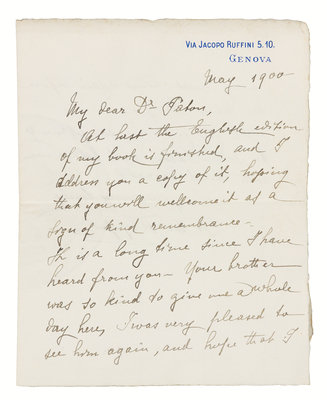 VIA JACOPO RUFFINI 5.10.
GENOVA
May 1900
My dear Dr. Paton,
At last the English edition
of my book is finished, and I
address you a copy of it, hoping
that you will wellcome it as a
sign of kind remembrance -
It is a long time since I have
heard from you - Your brother
was so kind to give me a whole
day here, I was very pleased to
see him again, and hope that I